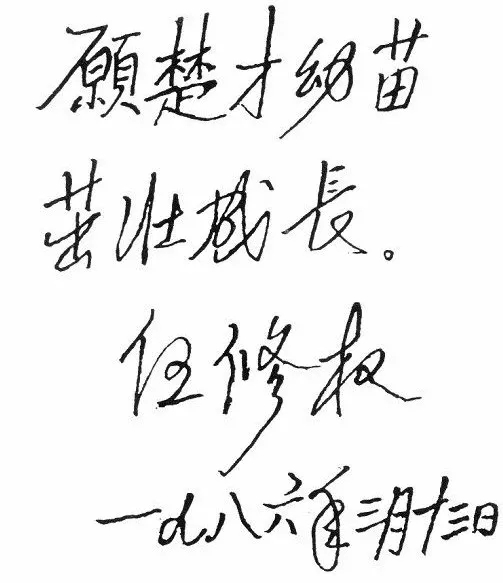 願楚才幼苗
茁壮成長。
伍修权
一九八六年三月十三日